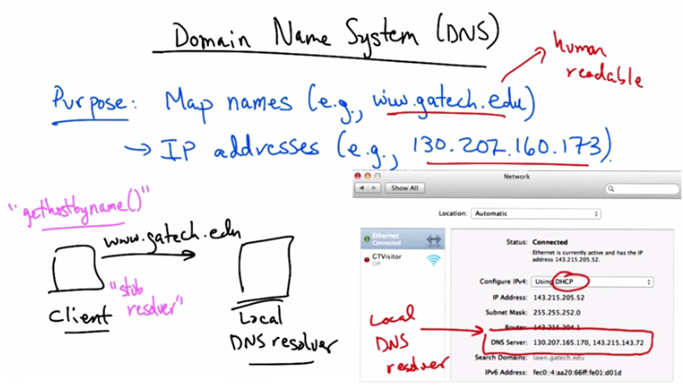 Domain Name System (DNS)
human
readable
Purpose: Map names (e.g., www.gatech.edu)
→ IP addresses (e.g., 130.207.160.173)
"gethostbyname()"
www.gatech.edu
"stub
resolver"
Client
Local
DNS resolver
Network
Show All
Location: Automatic
Ethernet
Connected
CTVisitor
Off
Status: Connected
Ethernet is currently active and has the IP
address 143.215.205.52.
Configure IPv4: Using DHCP
IP Address: 143.215.205.52
Subnet Mask: 255.255.252.0
Router: 143.215.204.1
DNS Server: 130.207.165.170, 143.215.143.72
Search Domains: lawn.gatech.edu
IPv6 Address: fec0::4:aa20:66ff:fe01:d01d
Local
DNS
resolver